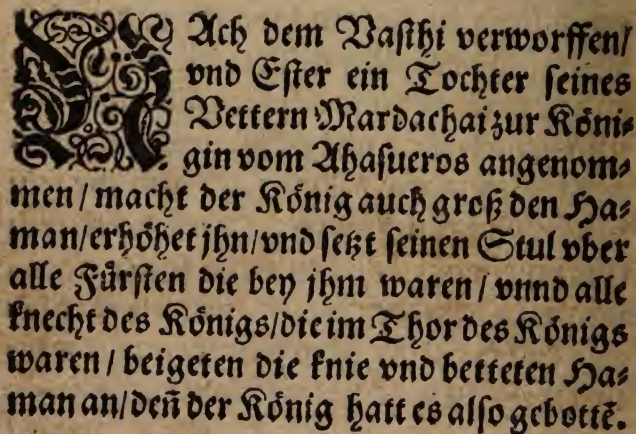 NAch dem Vasthi verworffen/
vnd Ester ein Tochter seines
Vettern Mardachai zur Köni⸗
gin vom Ahasueros angenom⸗
men / macht der König auch groß den Ha⸗
man/erhöhet jhn/vnd setzt seinen Stul vber
alle Fürsten die bey jhm waren / vnnd alle
knecht des Königs/die im Thor des Königs
waren / beigeten die knie vnd betteten Ha⸗
man an/deñ der König hatt es also gebottẽ.